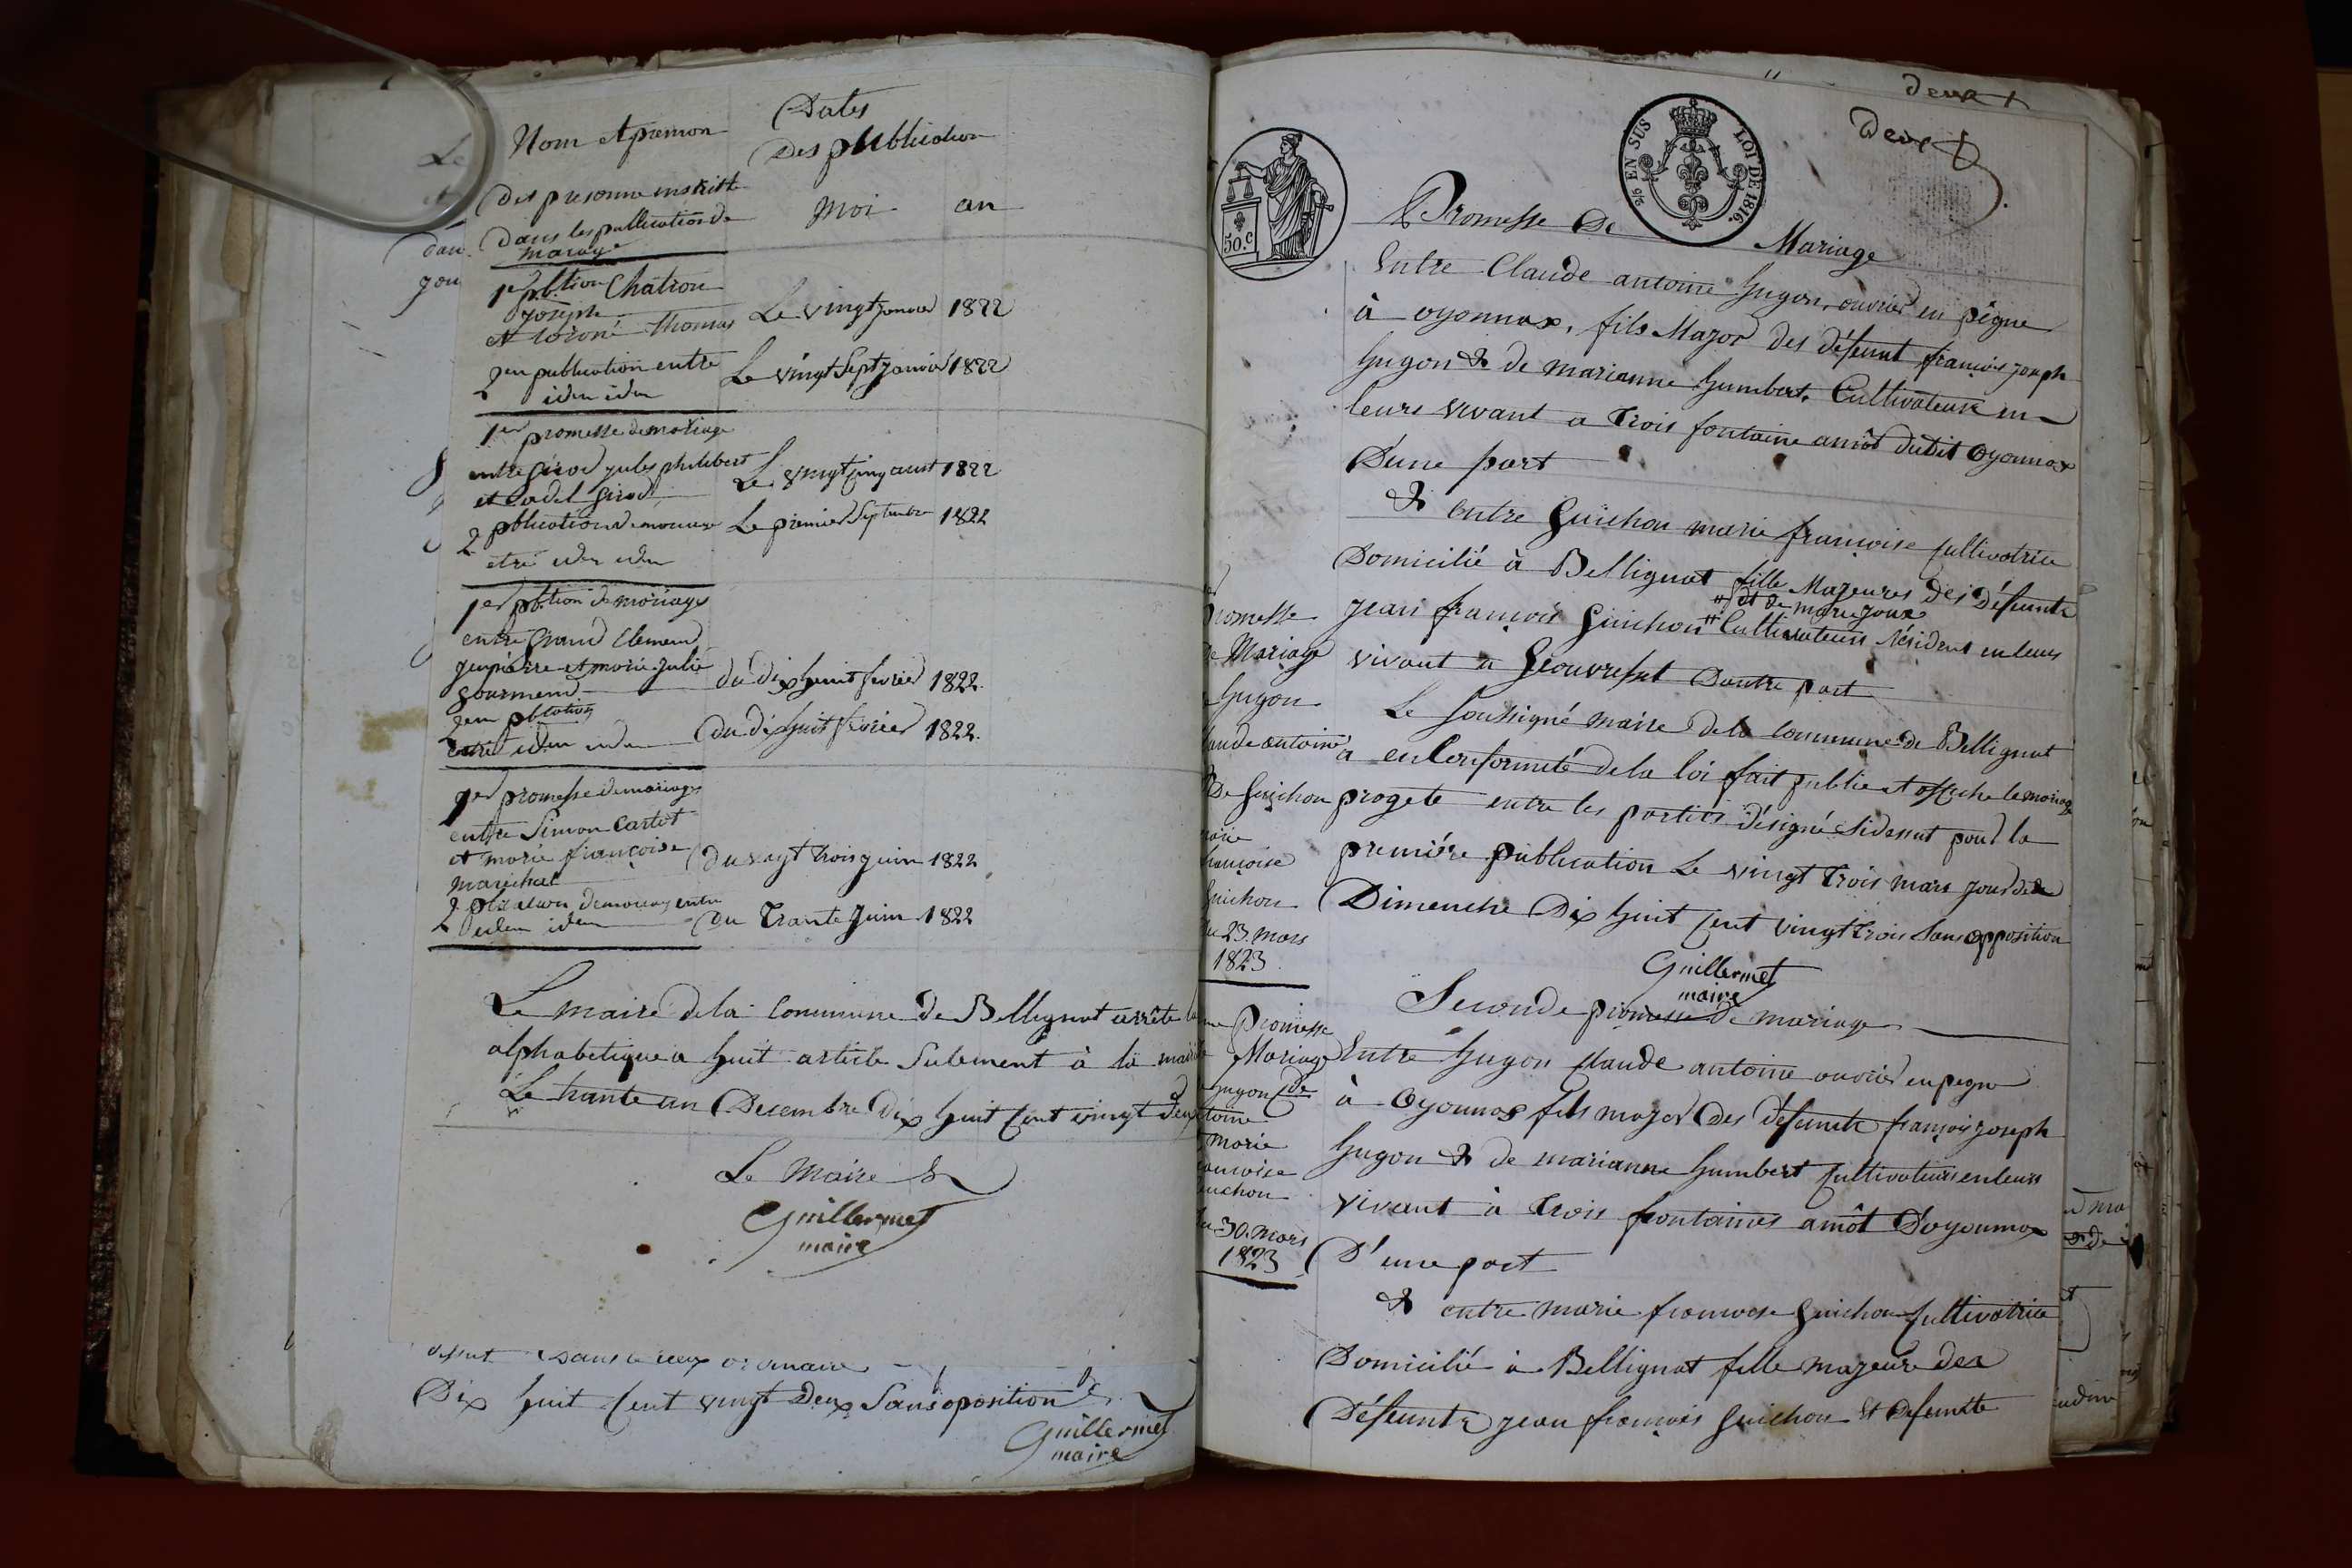 Nom et prenom
Dates
Des publication
des presonne inscritte
dans les publication de
mariage
Moi
an
dan
gou
1er pbtion Chatron
joseph
et Thomas
Le vingt janvier 1822
2em publication entre
idem idem
Le vingt Sept janvier 1822
1er promesse de mariage
entre girod jules philibert
et girod
Le vingt cinq aust 1822
2 pblication de mariage
idem idem
Le premier Septembre 1822
1er pbtion de mariage
entre grand Clemend
jeupierre et marie julie
gourmend
du dix huit fevrier 1822.
2em pbcation
entre idem idem
du dix huit fevrier 1822.
1er promesse de mariage
entre Simon Cartet
et marie françoise
marechal
du vingt trois juin 1822
2 de mariage entre
idem idem
du Trante Juin 1822
Le maire de la Commune de Bellignat arrête la
alphabetique a huit article Sulement à la mairie
Le trante un Decembre Dix huit Cent vingt deux
Le Maire
Guillermet
maire
Dix huit Cent vingt Deux Sans oposition
Guillermet
maire
deux
Deux
2/10 EN SUS
LOI DE 1816.
50.c
Promesse De Mariage
Entre Claude antoine hugon, ouvrier en pêgne
à oyonnax, fils Major des défeunt françois joseph
hugon & de marianne humbert, Cultivateur en
leurs vivant a Trois fontaine amôt dudit Oyonnax
D'une part
& entre Guichon marie françoise Cultivatrice
Domicilié à Bellignat fille Majeures des Défeunte
" et de marie joux
jean françois Guichon " Cultivateurs Résident en leurs
vivant a Geouvresset D'autre part
Le Soussigné maire de la commune de Bellignat
a en Conformité de la loi fait publie et affiche le mariage
progeté entre les parties désigné Sidessut pour la
premiére publication Le vingt Trois mars jour de
Dimenche Dix huit Cent vingt Trois Sans opposition
Guillermet
maire
Promesse
de Mariage
hugon
Claude antoine
De Guichon
marie
françoise
Guichon
du 23. mars
1823
Seconde promesse de mariage
Entre hugon Claude antoine ouvrier en pegne
à Oyonnax fils major Des défeunte françois joseph
hugon & de marianne humbert Cultivateurs en leurs
vivant à Trois fontaines amôt D'oyonnax
D'une part
& entre marie françoise Guichon Cultivatrice
Domicilié à Bellignat fille majeure des
Défeunte jean françois Guichon et Defeuntte
Promesse
Mariage
hugon
marie
du 30. mars
1823